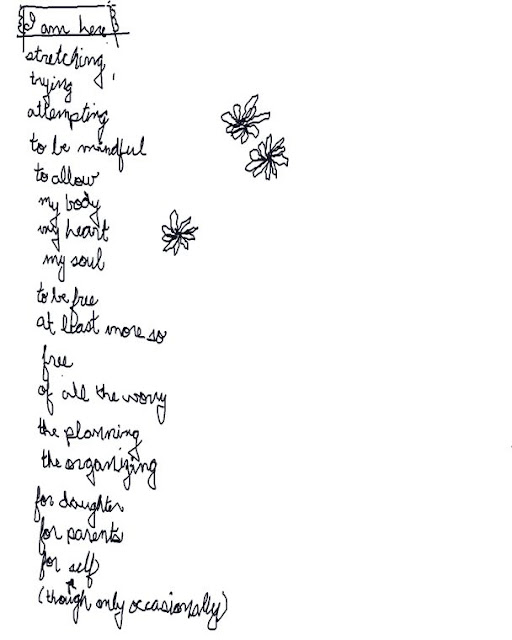 I am here
stretching,
trying
attempting
to be mindful
to allow
my body
my heart
my soul
to be free
at least more so
free
of all the worry
the planning
the organizing
for daughter
for parents
for self
(though only occasionally)